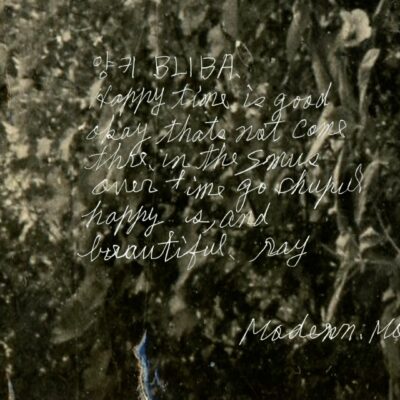 양키 BLIBA
Happy time is good
okay thats not come
thre in the smus
over time go chupul
happy is, and
beautiful ray
Modern. Mo